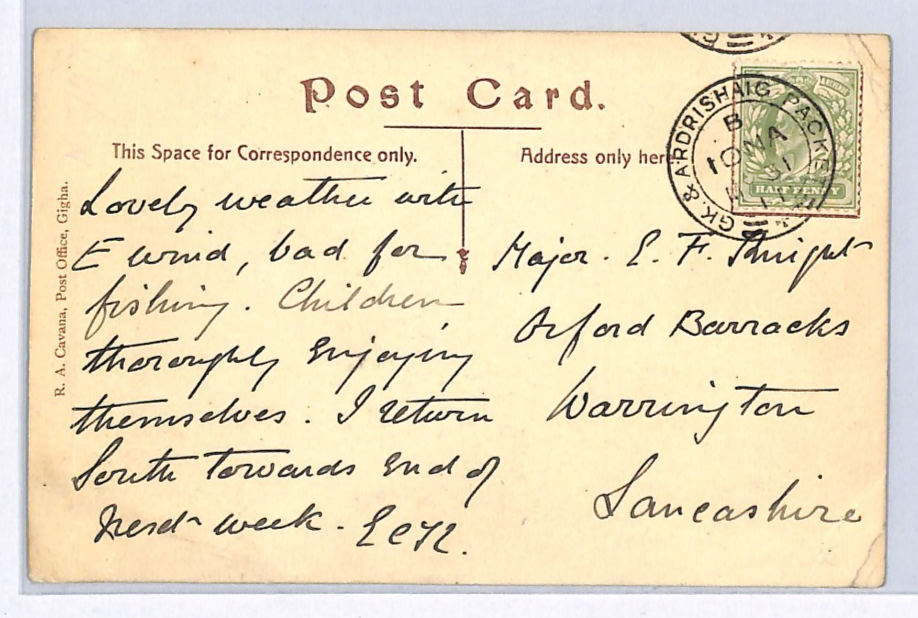 Post Card.
This Space for Correspondence only.
Address only here
R. A. Cavana, Post Office, Gigha.
GK. & ARDRISHAIG PACKET
B
IONA
31
HALF PENNY
Lovely weather with
E wind, bad for
fishing. Children
thoroughly enjoying
themselves. I return
South towards end of
next week.
Major. E. F. Knight
Orford Barracks
Warrington
Lancashire